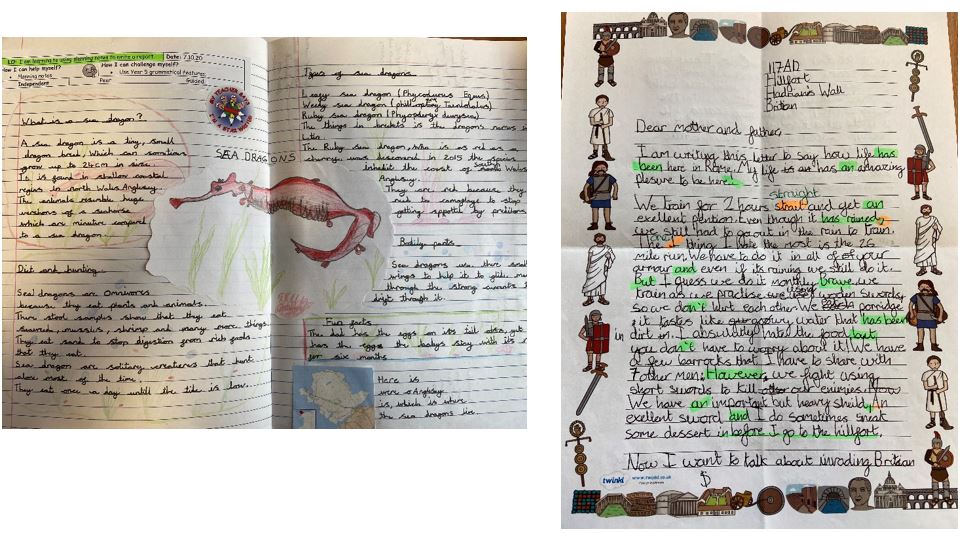 LO: I am learning to using planning notes to write a report.
Date: 7.10.20
How can I help myself?
How can I challenge myself?
Planning notes
Use Year 5 grammatical features
Independent
Peer
Guided
What is a sea dragon?
A sea dragon is a tiny, small
dragon breed, Which can somtimes
grow up to 24cm in size.
Is is found in shallow coastal
regions in north Wales Anglesey.
The animals resemble huge
versions of a seahorse
which are minuture compared
to a sea dragon
Diet and hunting.
Sea dragons are Omnivores
because they eat plants and animals.
There stool samples show that they eat
seaweed, mussels, shrimp and many more things.
They eat sand to stop digestion from rich foods
that they eat.
Sea dragon are solitary creatures that hunt
alone most of the time,
They eat once a day untill the tide is low.
SEA DRAGONS
Types of sea dragons
Leafy sea dragon (Phycodurus Eques)
Weedy sea dragon
Ruby sea dragon
The things in brackets is the dragons names in
Latin.
The Ruby Sea dragon, Who is as red as a
cherry, was discovered in 2015 the species
inhabit the coast of South Wales
Anglesey.
They are red because they
need to camoflage to stop
getting spotted by preditors
Bodily parts
Sea dragons use there small
wings to help it to glide
through the strong currents
drift through it.
Fun facts
The male has the eggs on its tail
has the eggs the babys stay with its
for six months
Here is
were Anglesey
is, which is where
the sea dragons live.
117AD
Hillfort
Hadrian's Wall
Britan
Dear mother and father,
I am writing this letter to say how life has
been here in Rome. My life is an has an amazing
plesure to be here.
straight
We train for 2 hours strait and get an
excellent pention. Even though it has rained
we still had to go out in the rain to train.
The thing I hate the most is the 26
mile run. We have to do it in all of of your
armour and even if its raining we still do it.
But I guess we do it monthly, brave we
train as we practise we use wooden swords
so we don't hurt each other. We porridge
it tastes like water that has been
in dirt in. I insultily hate the food, but
you don't have to worry about it! We have
a few barrocks that I have to share with
7 other men, However, we fight using
short swords to kill our enemies. Now
We have an important but heavy sheild, An
exellent sword and I do sometimes sneak
some dessert in before I go to the hillfort.
Now I want to talk about invading Britian
twinkl www.twinkl.co.uk